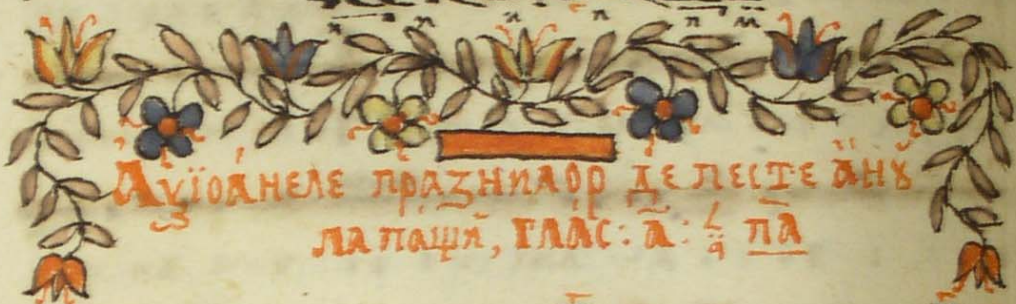 Аѯїоанеле празничлор де песте анꙋ
ла пащй, глас: а: па